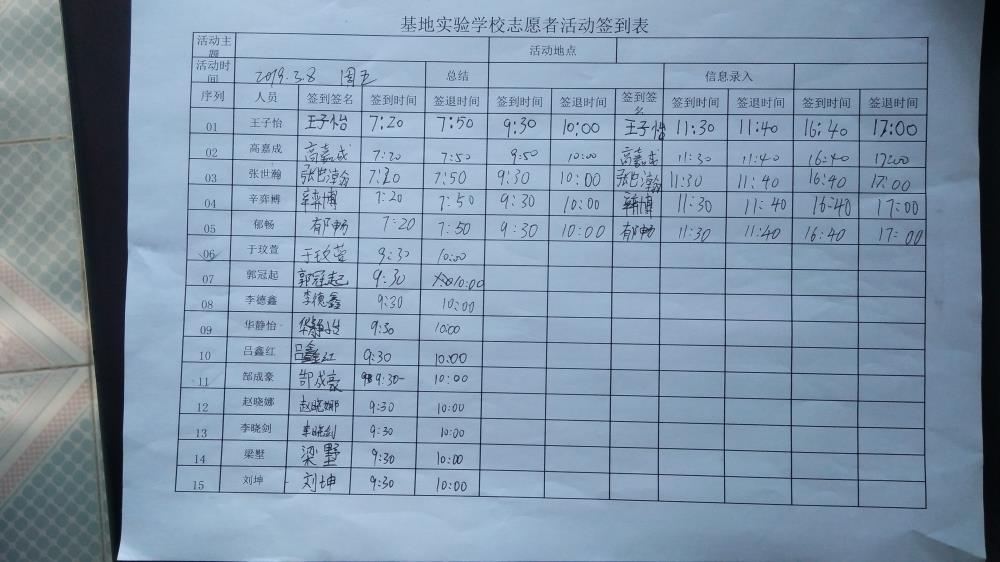 基地实验学校志愿者活动签到表
活动主题 活动地点
活动时间 2019.3.8 周五 总结 信息录入
序列 人员 签到签名 签到时间 签退时间 签到时间 签退时间 签到签名 签到时间 签退时间 签到时间 签退时间
01 王子怡 王子怡 7:20 7:50 9:30 10:00 王子怡 11:30 11:40 16:40 17:00
02 高嘉成 高嘉成 7:20 7:50 9:50 10:00 高嘉成 11:30 11:40 16:40 17:00
03 张世瀚 张世瀚 7:20 7:50 9:30 10:00 张世瀚 11:30 11:40 16:40 17:00
04 辛弈博 辛弈博 7:20 7:50 9:30 10:00 辛弈博 11:30 11:40 16:40 17:00
05 郁畅 郁畅 7:20 7:50 9:30 10:00 郁畅 11:30 11:40 16:40 17:00
06 于玟萱 于玟萱 9:30 10:00
07 郭冠起 郭冠起 9:30 10:00
08 李德鑫 李德鑫 9:30 10:00
09 华静怡 华静怡 9:30 10:00
10 吕鑫红 吕鑫红 9:30 10:00
11 郜成豪 郜成豪 9:30 10:00
12 赵晓娜 赵晓娜 9:30 10:00
13 李晓剑 李晓剑 9:30 10:00
14 梁墅 梁墅 9:30 10:00
15 刘坤 刘坤 9:30 10:00